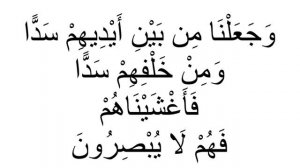 وَجَعَلْنَا مِن بَيْنِ أَيْدِيهِمْ سَدًّا
وَمِنْ خَلْفِهِمْ سَدًّا
فَأَغْشَيْنَاهُمْ
فَهُمْ لَا يُبْصِرُونَ